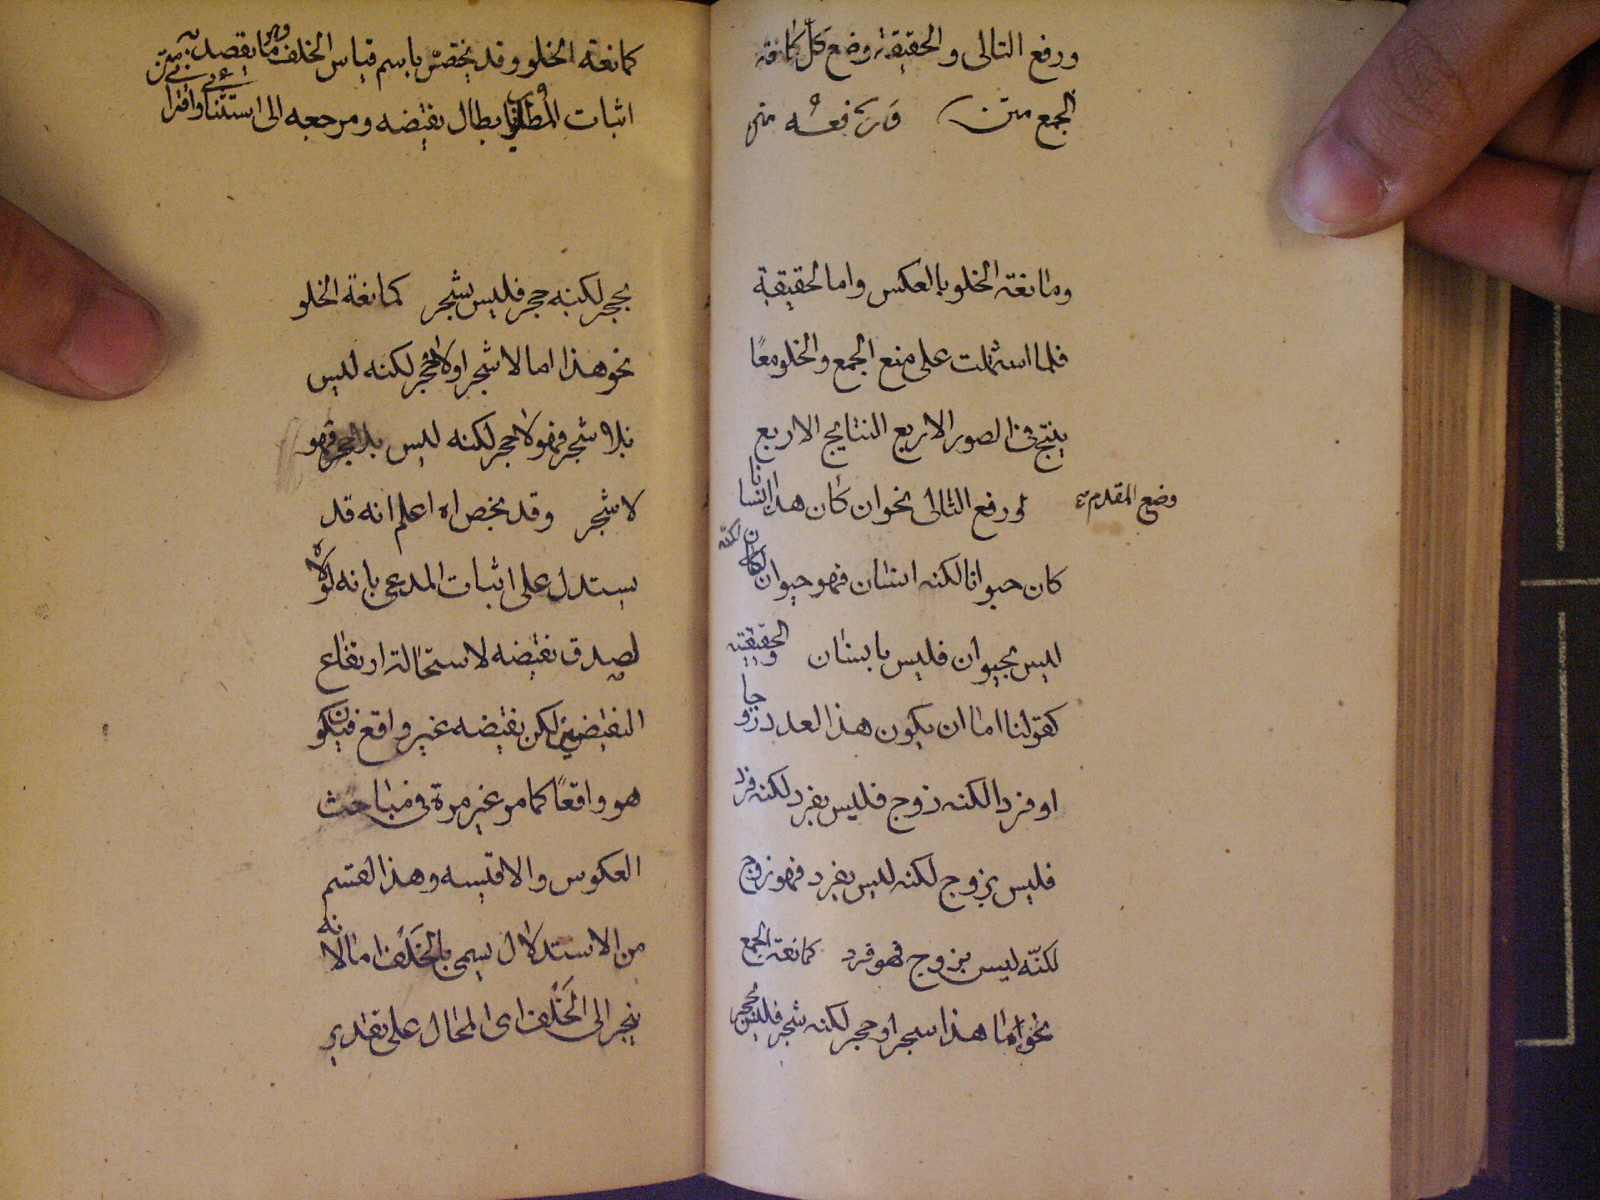 ورفع التالى والحقيقة وضع كل كمانعة
الجمع متن ورفعه متن
ومانعة الخلو بالعكس واما الحقيقية
فلما اشتملت على منع الجمع والخلو معًا
ينتج فى الصور الاربع النتايج الاربع
وضع المقدم
ورفع التالى نحو ان كان هذا انسانا
كان حيوانا لكنه انسان فهو حيوان لكنه
ليس بحيوان فليس بانسان والحقيقية
كقولنا اما ان يكون هذا العدد زوجا
او فردا لكنه زوج فليس بفرد لكنه فرد
فليس بزوج لكنه ليس بفرد فهو زوج
لكنّه ليس بزوج فهو فرد كمانعة الجمع
نحو اما هذا شجر او حجر لكنه شجر فليس بحجر
كمانعة الخلو وقد يختصّ باسم قياس الخلف وهو ما يقصد به
اثبات المطلوب بابطال نقيضه ومرجعه الى استثنائى واقترانى متن
بحجر لكنه حجر فليس بشجر كمانعة الخلو
نحو هذا اما لا شجر او لا حجر لكنه ليس
بلا شجر فهو لا حجر لكنه ليس بلا حجر فهو
لا شجر وقد يخص اه اعلم انه قد
يستدل على اثبات المدعى بانه لولاه
لصدق نقيضه لاستحالة ارتفاع
النقيضين لكن نقيضه غير واقع فيكون
هو واقعًا كما مر غير مرة فى مباحث
العكوس والاقيسه وهذا القسم
من الاستدلال يسمى بالخَلف اما لانه
ينجر الى الخَلف اى المحال على تقدير